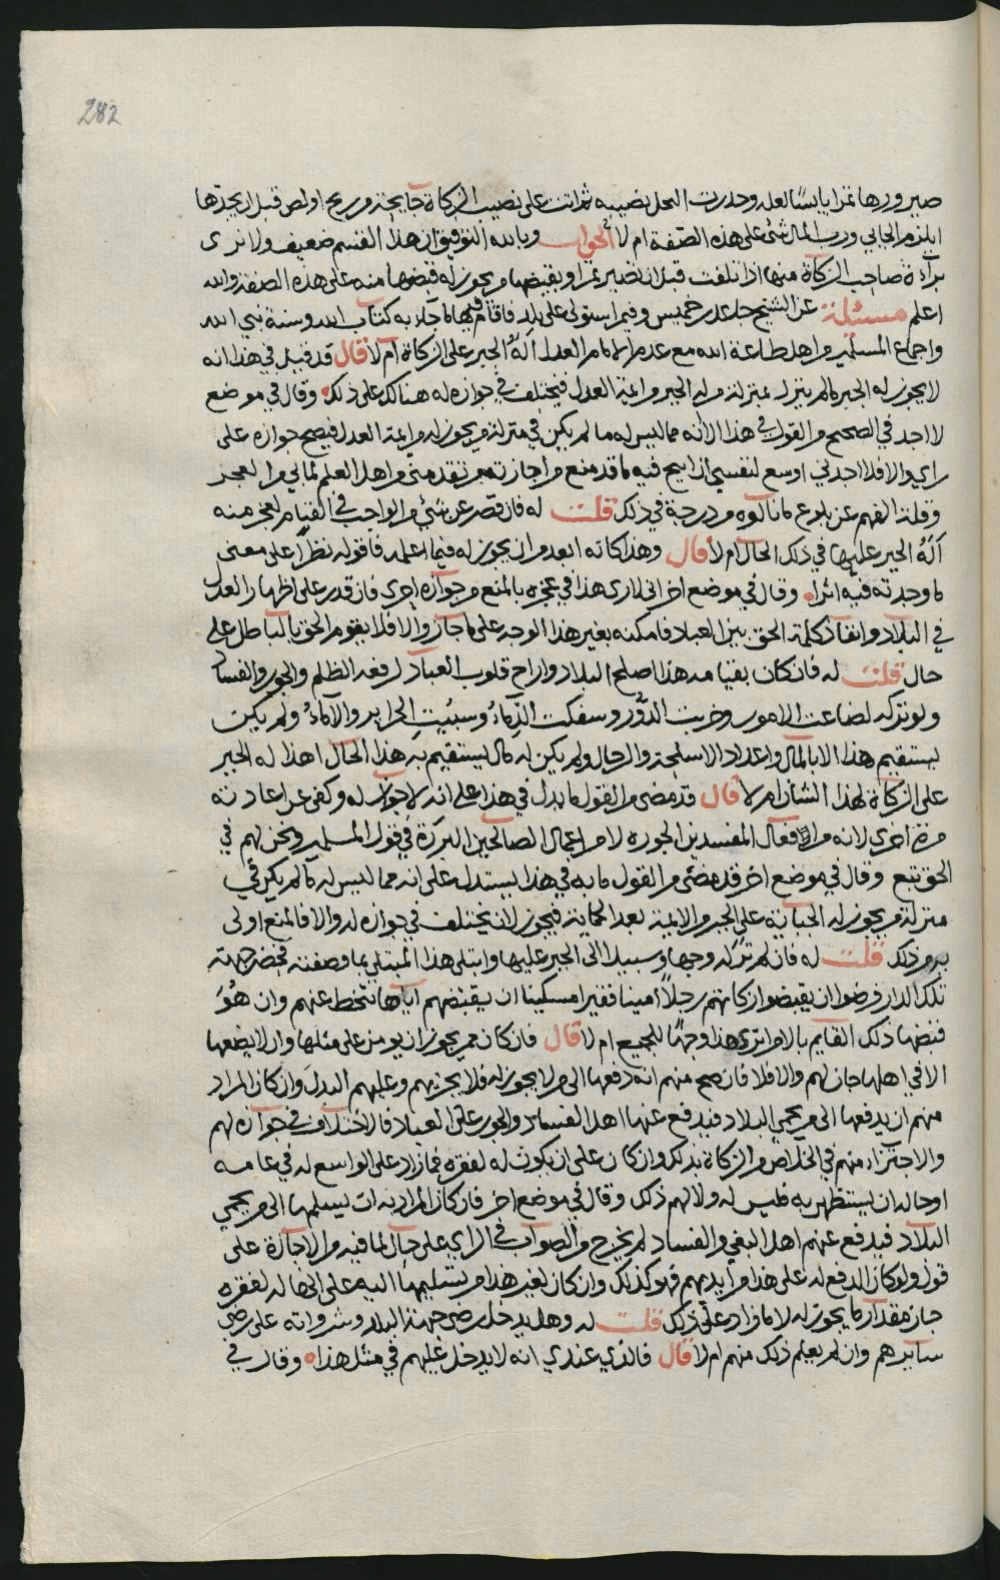 282
صيرورها تمرا يابسا لعله وحدرت النخل نصيبه ثم اتت على نصيب الزكاة جايحة من ريح او لص قبل ان يجدها
ايلزم الجابي ورب المال شئ على هذه الصفة ام لا الجواب وبالله التوفيق ان هذا القسم ضعيف ولا نرى
براءة صاحب الزكاة منها اذا تلفت قبل ان تصير تمرا ويقبضها من يجوز له قبضها منه على هذه الصفة والله
اعلم مسئلة عن الشيخ جاعد بن خميس وفيمن استولى على بلد فاقام فيها ما جاء به كتاب الله وسنة نبي الله
واجماع المسلمين من اهل طاعة الله مع عدم الامام العدل أله الجبر على الزكاة ام لا قال قد قيل في هذا انه
لا يجوز له الجبر ما لم ينزل بمنزلة من له الجبر من ائمة العدل فيختلف في جوازه له هنالك على ذلك وقال في موضع
لا اجد في الصحيح من القول في هذا الا انه مما ليس له ما لم يكن في منزلة من يجوز له من ايمة العدل فيصح جوازه على
راي والا فلا اجدني اوسع لنفسي ان ابيح فيه ما قد منع من اجازته من تقدمني من اهل العلم لما بي من العجز
وقلة الفهم عن بلوغ ما نالوه من درجة في ذلك قلت له فان قصر عن شئ من الواجب في القيام لعجز منه
أله الجبر عليها في ذلك الحال ام لا قال وهذا كانه ابعد من ان يجوز له فيما اعلمه فاقوله نظرا على معنى
ما وجدته فيه اثرا وقال في موضع اخر اني لارى هذا في عجزه بالمنع من جوازه احرى فان قدر على اظهار العدل
في البلاد وانفاذ كلمة الحق بين العباد فامكنه بغير هذا الوجه على ما جاز والا فلا يقوم الحق بالباطل على
حال قلت له فان كان بقيامه هذا اصلح البلاد واراح قلوب العباد لرفعه الظلم والجور والفساد
ولو تركه لضاعت الامور وخربت الدور وسفكت الدماء وسبيت الحراير والاماء ولم يكن
يستقيم هذا الا بالمال واعداد الاسلحة والرجال ولم يكن له مال يستقيم به هذا الحال اهذا له الجبر
على الزكاة لهذا الشان ام لا قال قد مضى من القول ما يدل في هذا على انه لا جواز له وكفى عن اعادته
مرة اخرى لانه من افعال المفسدين الجورة لا من اعمال الصالحين البررة في قول المسلمين ونحن لهم في
الحق تبع وقال في موضع اخر قد مضى من القول ما به في هذا يستدل على انه مما ليس له ما لم يكن في
منزلة من يجوز له الجباية على الجبر من الايمة بعد الحماية فيجوز لان يختلف في جوازه له والا فالمنع اولى
به من ذلك قلت له فان لم تر له وجها وسبيلا الى الجبر عليها وابتلي هذا المبتلى بما وصفته فحضر جهة
تلك الدار فرضوا ان يقبضوا زكاتهم رجلا امينا فقيرا مسكينا ان يقبضهم اياها تنحط عنهم وان هو
قبضها ذلك القايم بالامر اترى هذا وجها للجميع ام لا قال فان كان ممن يجوز ان يومن على مثلها وان لا يضعها
الا في اهلها جاز لهم والا فلا فان صح منهم انه دفعها الى من لا يجوز له فلا يجزيهم وعليهم البدل وان كان المراد
منهم ان يدفعها الى من يحمي البلاد فيدفع عنها اهل الفساد والجور على العباد فالاختلاف في جوازه لهم
والاجتزاء منهم في الخلاص من الزكاة بذلك وان كان على ان يكون له لفقره فما زاد على الواسع له في عامه
او حاله ان يستظهر به فليس له ولا لهم ذلك وقال في موضع اخر فان كان المراد به ان يسلمها الى من يحمي
البلاد فيدفع عنهم اهل البغي والفساد لم يخرج من الصواب في الراي على حال لما فيه من الاجازة على
قول ولو كان الدفع له على هذا من ايديهم فهو كذلك وان كان لغير هذا من تسليمها اليه على انها له لفقره
جاز مقدار ما يجوز له لا ما زاد على ذلك قلت له وهل يدخل رضى جهة البلد وشرواته على رضى
سايرهم وان لم يعلم ذلك منهم ام لا قال فالذي عندي انه لا يدخل عليهم في مثل هذا وقال في